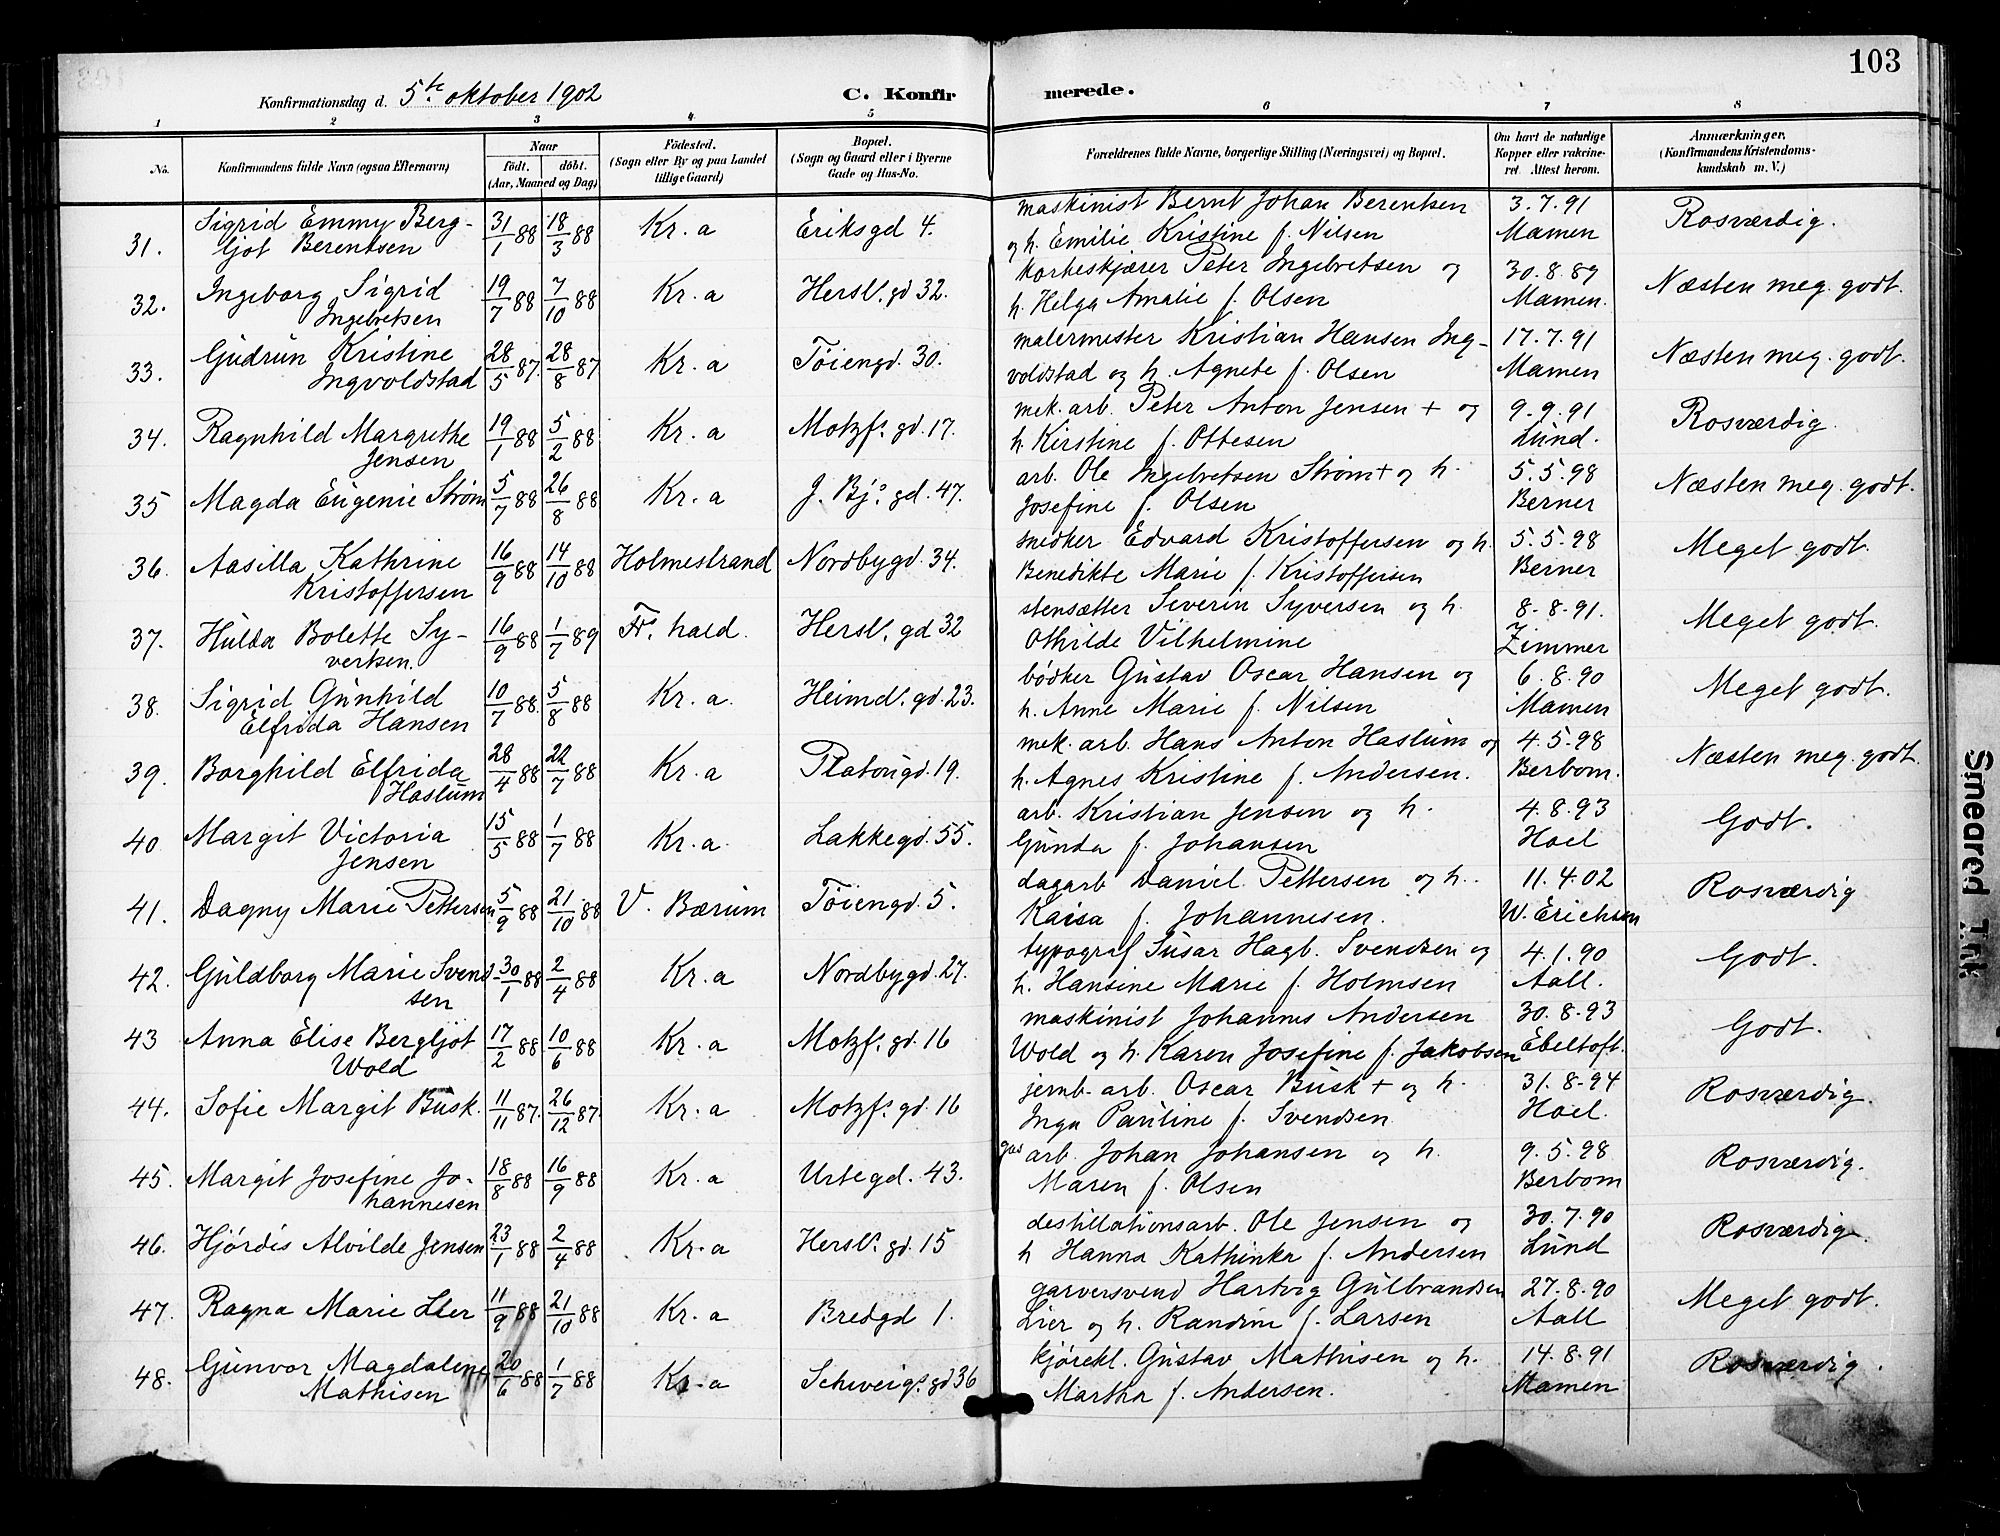 103
Konfirmationsdag d. 5te oktober 1902 C. Konfirmerede.
1 2 3 4 5 6 7 8
No. Konfirmandens fulde Navn (ogsaa Efternavn) Naar født. døbt. (Aar, Maaned og Dag) Fødested. (Sogn eller By og paa Landet tillige Gaard) Bopæl. (Sogn og Gaard eller i Byerne Gade og Hus-No. Forældrenes fulde Navne, borgerlige Stilling (Næringsvei) og Bopæl. Om havt de naturlige Kopper eller vakcineret. Attest herom. Anmærkninger, (Konfirmandens Kristendomskundskab m. V.)
31. Sigrid Emmy Berg- 31/1 88 18/3 88 Kr.a Eriksgd 4. maskinist Bernt Johan Berentsen 3.7.91 Rosværdig.
ljot Berentsen og h. Emilie Kristine f. Nilsen Mamen
32. Ingeborg Sigrid 19/7 88 7/10 88 Kr.a Hersl's. gd 32. korkeskjærer Peter Ingebretsen og 30.8.89 Næsten meg. godt.
Ingebretsen h. Helga Amalie f. Olsen Mamen.
33. Gudrun Kristine 28/5 87. 28/8 87 Kr.a Tøiengd. 30. malermester Kristian Hansen Ing- 17.7.91 Næsten meg. godt.
Ingvoldstad voldstad og h. Agnete f. Olsen Mamen
34. Ragnhild Margrethe 19/1 88 5/2 88 Kr.a Motzf's. gd. 17. mek. arb. Peter Anton Jensen + og 9.9.91 Rosværdig.
Jensen h. Kirstine f. Ottesen Lund.
35 Magda Eugenie Strøm 5/7 88 26/8 88 Kr.a J. Bj's. gd. 47. arb. Ole Ingebretsen Strøm + og h. 5.5.98 Næsten meg. godt.
Josefine f. Olsen Berner
36. Aasilla Kathrine 16/9 88 14/10 88 Holmestrand Nordbygd. 34. snedker Edvard Kristoffersen og h. 5.5.98 Meget godt.
Kristoffersen Benedikte Marie f. Kristoffersen Berner
37. Hulda Bolette Sy- 16/9 88 1/7 89 Frs. hald. Hersl's. gd 32 stensætter Severin Syversen og h. 8.8.91. Meget godt.
vertsen. Othilde Vilhelmine Zimmer
38. Sigrid Gunhild 10/7 88. 5/8 88 Kr.a. Heimd's. gd. 23. bødker Gustav Oscar Hansen og 6.8.90 Meget godt.
Elfrida Hansen h. Anne Marie f. Nilsen Mamen
39. Borghild Elfrida 28/4 88 22/7 88 Kr.a Platougd. 19. mek. arb. Hans Anton Haslum og 4.5.98 Næsten meg. godt.
Haslum h. Agnes Kristine f. Andersen. Berbom.
40 Margit Victoria 15/5 88 1/7 88 Kr.a. Lakkegd. 55. arb. Kristian Jensen og h. 4.8.93 Godt.
Jensen Gunda f. Johansen Hoel
41. Dagny Marie Pettersen 5/9 88 21/10 88 V. Bærum Tøiengd. 5. dagarb Daniel Pettersen og h. 11.4.02 Rosværdig
Kaisa f. Johannesen. W. Erichsen
42. Guldborg Marie Svend 30/1 88 2/4 88 Kr.a Nordbygd. 27. typograf Susar Hagb. Svendsen og 4.1.90 Godt.
sen h. Hansine Marie f. Holmsen Aall.
43 Anna Elise Bergljot 17/2 88. 10/6 88 Kr.a Motzf's. gd. 16 maskinist Johannes Andersen 30.8.93 Godt.
Wold Wold og h. Karen Josefine f. Jakobsen Ebeltoft.
44. Sofie Margit Busk. 11/11 87. 26/12 87. Kr.a Motzf's. gd. 16 jernb. arb. Oscar Busk + og h. 31.8.94 Rosværdig.
Inga Pauline f. Svendsen Hoel.
45. Margit Josefine Jo- 18/8 88 16/9 88 Kr.a Urtegd. 43. gas arb. Johan Johansen og h. 9.5.98 Rosværdig.
hannesen Maren f. Olsen Berbom
46. Hjørdis Alvilde Jensen 23/1 88 2/4 88 Kr.a Hersl's. gd. 15 destillationsarb. Ole Jensen og 30.7.90 Rosværdig.
h Hanna Kathinka f. Andersen Lund
47. Ragna Marie Lier 11/9 88 21/10 88 Kr.a Bredgd 1. garversvend Hartvig Gulbrandsen 27.8.90 Meget godt.
Lier og h. Randine f. Larsen Aall
48. Gunvor Magdalene 20/6 88 1/7 88 Kr.a Schweig's. gd 36 kjørekl. Gustav Mathisen og h. 14.8.91 Rosværdig.
Mathisen Martha f. Andersen. Mamen
Smeared Ink